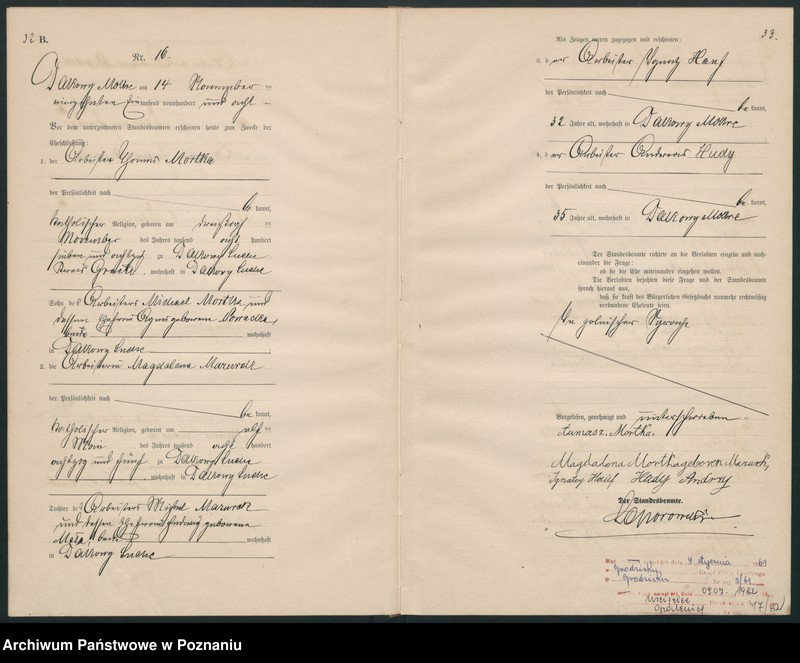 32 B.
Nr. 16.
Dakowy Mokre am 14 November
vierzehnten Eintausend neunhundert und acht
Vor dem unterzeichneten Standesbeamten erschienen heute zum Zwecke der
Eheschließung:
1. der Arbeiter Thomas Mortka
der Persönlichkeit nach
be kannt,
katholischer Religion, geboren am
November des Jahres tausend acht hundert
sieben und achtzig zu Dakowy
Kreis Graetz, wohnhaft in Dakowy
Sohn des Arbeiters Michael Mortka und
dessen Ehefrau Agnes geborenen
beide wohnhaft
in Dakowy
2. die Arbeiterin Magdalena Mazurek
der Persönlichkeit nach
be kannt,
katholischer Religion, geboren am elf
des Jahres tausend acht hundert
achtzig und fünf zu Dakowy
wohnhaft in Dakowy
Tochter des Arbeiters Michael Mazurek
und dessen Ehefrau Hedwig geborene
beide wohnhaft
in Dakowy
33.
Als Zeugen waren zugezogen und erschienen:
3. der Arbeiter Ignatz
der Persönlichkeit nach
be kannt,
32 Jahre alt, wohnhaft in Dakowy Mokre
4. der Arbeiter Andreas Hudy
der Persönlichkeit nach
be kannt,
35 Jahre alt, wohnhaft in Dakowy Mokre
Der Standesbeamte richtete an die Verlobten einzeln und nach-
einander die Frage:
ob sie die Ehe miteinander eingehen wollen.
Die Verlobten bejahten diese Frage und der Standesbeamte
sprach hierauf aus,
daß sie kraft des Bürgerlichen Gesetzbuchs nunmehr rechtmäßig
verbundene Eheleute seien.
In polnischer Sprache
Vorgelesen, genehmigt und unterschrieben
Tumasz. Mortka.
Magdalena Mortka geboren Mazurek,
Ignatz Hudy Andrzy
Der Standesbeamte.
4 stycznia 1961
w Grodzisku
w Grodzisku 3/61
09.07. 1982
Opalenicy 47/82
Archiwum Państwowe w Poznaniu